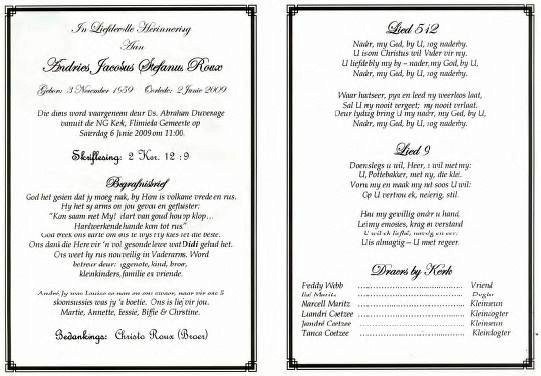 In Liefdevolle Herinnering
Aan
Andries Jacobus Stefanus Roux
Gebore: 3 November 1959 Oorlede: 2 Junie 2009
Die diens word waargeneem deur Ds. Abraham Duvenage
vanuit die NG Kerk, Elimieda Gemeente op
Saterdag 6 Junie 2009 om 11:00.
Skriflesing: 2 Kor. 12 : 9
Begrafnisbrief
God het gesien dat jy moeg raak, by Hom is volkane vrede en rus.
Hy het sy arms om jou gevou en gefluister:
"Kom saam met My! dart van goud hou op klop...
Hardwerkende hande kom tot rus"
God breek ons harte om ons te wys Hy kies net die beste.
Ons dank die Here vir 'n vol gesonde lewe wat Didi gehad het.
Ons weet hy rus nou veilig in Vaderarms. Word
betreur deur: eggenote, kind, broer,
kleinkinders, familie en vriende.
skoonsussies was jy 'n boetie. Ons is lief vir jou.
Martie, Annette, Eessie, Biffie & Christine.
Bedankings: Christo Roux (Broer)
Lied 512
Nader, my God, by U, nog naderby.
U is om Christus wil Vader vir my.
U liefde bly my by – nader, my God, by U,
Nader, my God, by U, nog naderby.
Waar hartseer, pyn en leed my weerloos laat,
Sal U my nooit vergeet; my nooit verlaat.
Deur lydsug bring U my nader, my God, by U,
Nader, my God, by U, nog naderby.
Lied 9
Doen slegs u wil, Heer, u wil met my:
U, Pottebakker, met my, die klei.
Vorm my en maak my net soos U wil:
Op U vertrou ek, needrig, stil.
Hou my gewillig onder u hand,
Lei my emosies, krag en verstand
U wil ek liefhê, novolg en eer:
U is almagtig – U moet regeer.
Draers by Kerk
Feddy Webb Vriend
Ilsé Maritz Dogter
Narcell Maritz Kleinseun
Luandri Coetzee Kleindogter
Jandré Coetzee Kleinseun
Tanca Coetzee Kleindogter